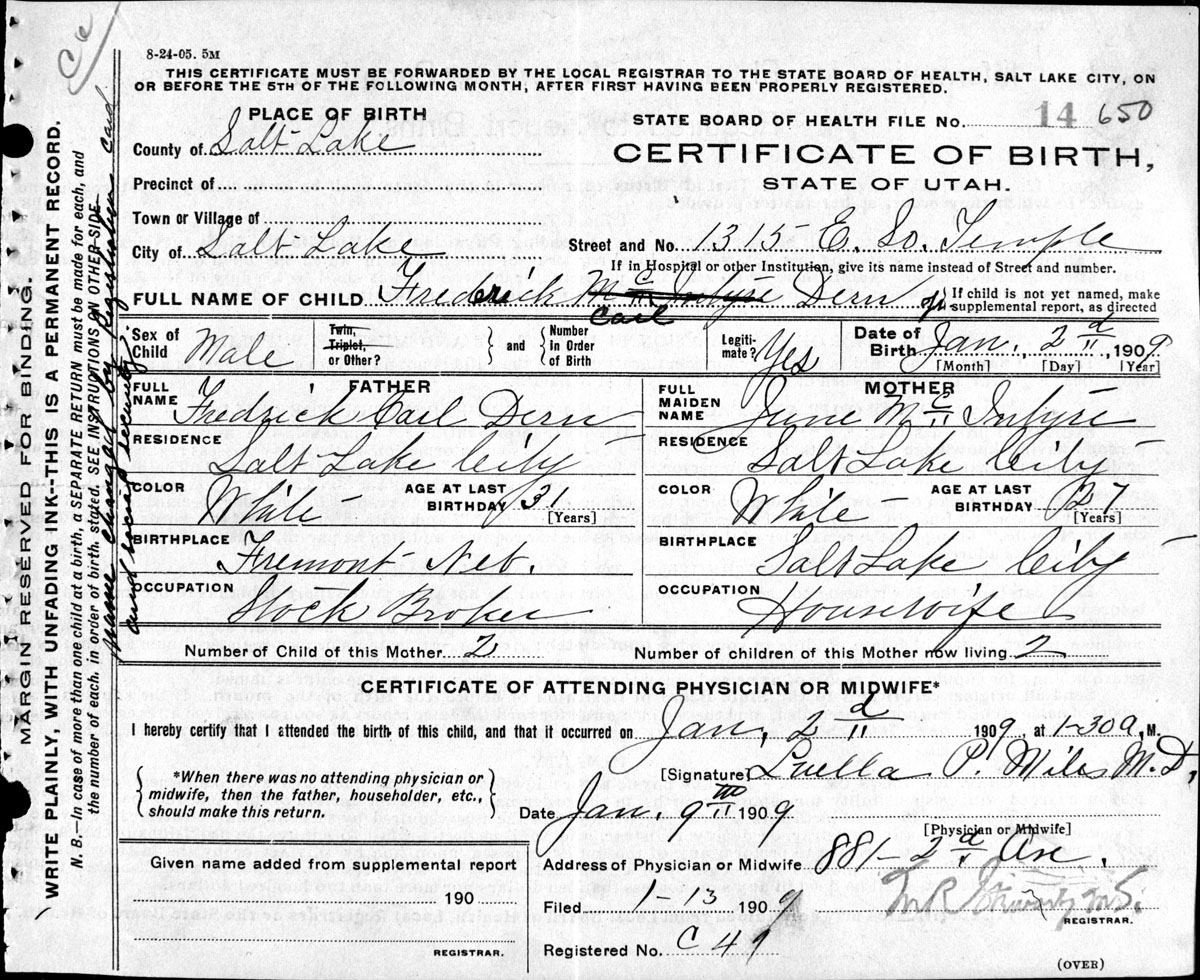 Ce
8-24-05. 5M
THIS CERTIFICATE MUST BE FORWARDED BY THE LOCAL REGISTRAR TO THE STATE BOARD OF HEALTH, SALT LAKE CITY, ON
OR BEFORE THE 5TH OF THE FOLLOWING MONTH, AFTER FIRST HAVING BEEN PROPERLY REGISTERED.
PLACE OF BIRTH
STATE BOARD OF HEALTH FILE No. 14 650
County of Salt Lake
CERTIFICATE OF BIRTH,
Precinct of
STATE OF UTAH.
Town or Village of
City of Salt Lake
Street and No. 1315 E. So. Temple
If in Hospital or other Institution, give its name instead of Street and number.
FULL NAME OF CHILD Frederick Mc Intyre Dern Jr.
Carl
If child is not yet named, make
supplemental report, as directed
Sex of Child Male
Twin, Triplet, or Other?
and
Number in Order of Birth
Legitimate? Yes
Date of Birth Jan. 2d 1909
[Month] [Day] [Year]
FATHER
FULL NAME Fredrick Carl Dern
RESIDENCE Salt Lake City
COLOR White
AGE AT LAST BIRTHDAY 31
[Years]
BIRTHPLACE Fremont Neb.
OCCUPATION Stock Broker
MOTHER
FULL MAIDEN NAME June Mc Intyre
RESIDENCE Salt Lake City
COLOR White
AGE AT LAST BIRTHDAY 27
[Years]
BIRTHPLACE Salt Lake City
OCCUPATION Housewife
Number of Child of this Mother 2
Number of children of this Mother now living 2
CERTIFICATE OF ATTENDING PHYSICIAN OR MIDWIFE*
I hereby certify that I attended the birth of this child, and that it occurred on Jan. 2d 1909, at 1-30 a. M.
*When there was no attending physician or
midwife, then the father, householder, etc.,
should make this return.
[Signature] Luella P. Miles M.D.
[Physician or Midwife]
Date Jan. 9th 1909
Given name added from supplemental report
190
REGISTRAR.
Address of Physician or Midwife 881- 2d Ave.
Filed 1-13 1909
REGISTRAR.
Registered No. C 49
(OVER)
MARGIN RESERVED FOR BINDING.
WRITE PLAINLY, WITH UNFADING INK--THIS IS A PERMANENT RECORD.
N. B.--In case of more than one child at a birth, a SEPARATE RETURN must be made for each, and
the number of each, in order of birth, stated. SEE INSTRUCTIONS ON OTHER SIDE.
Name changed by Registration Card
and Social Security.